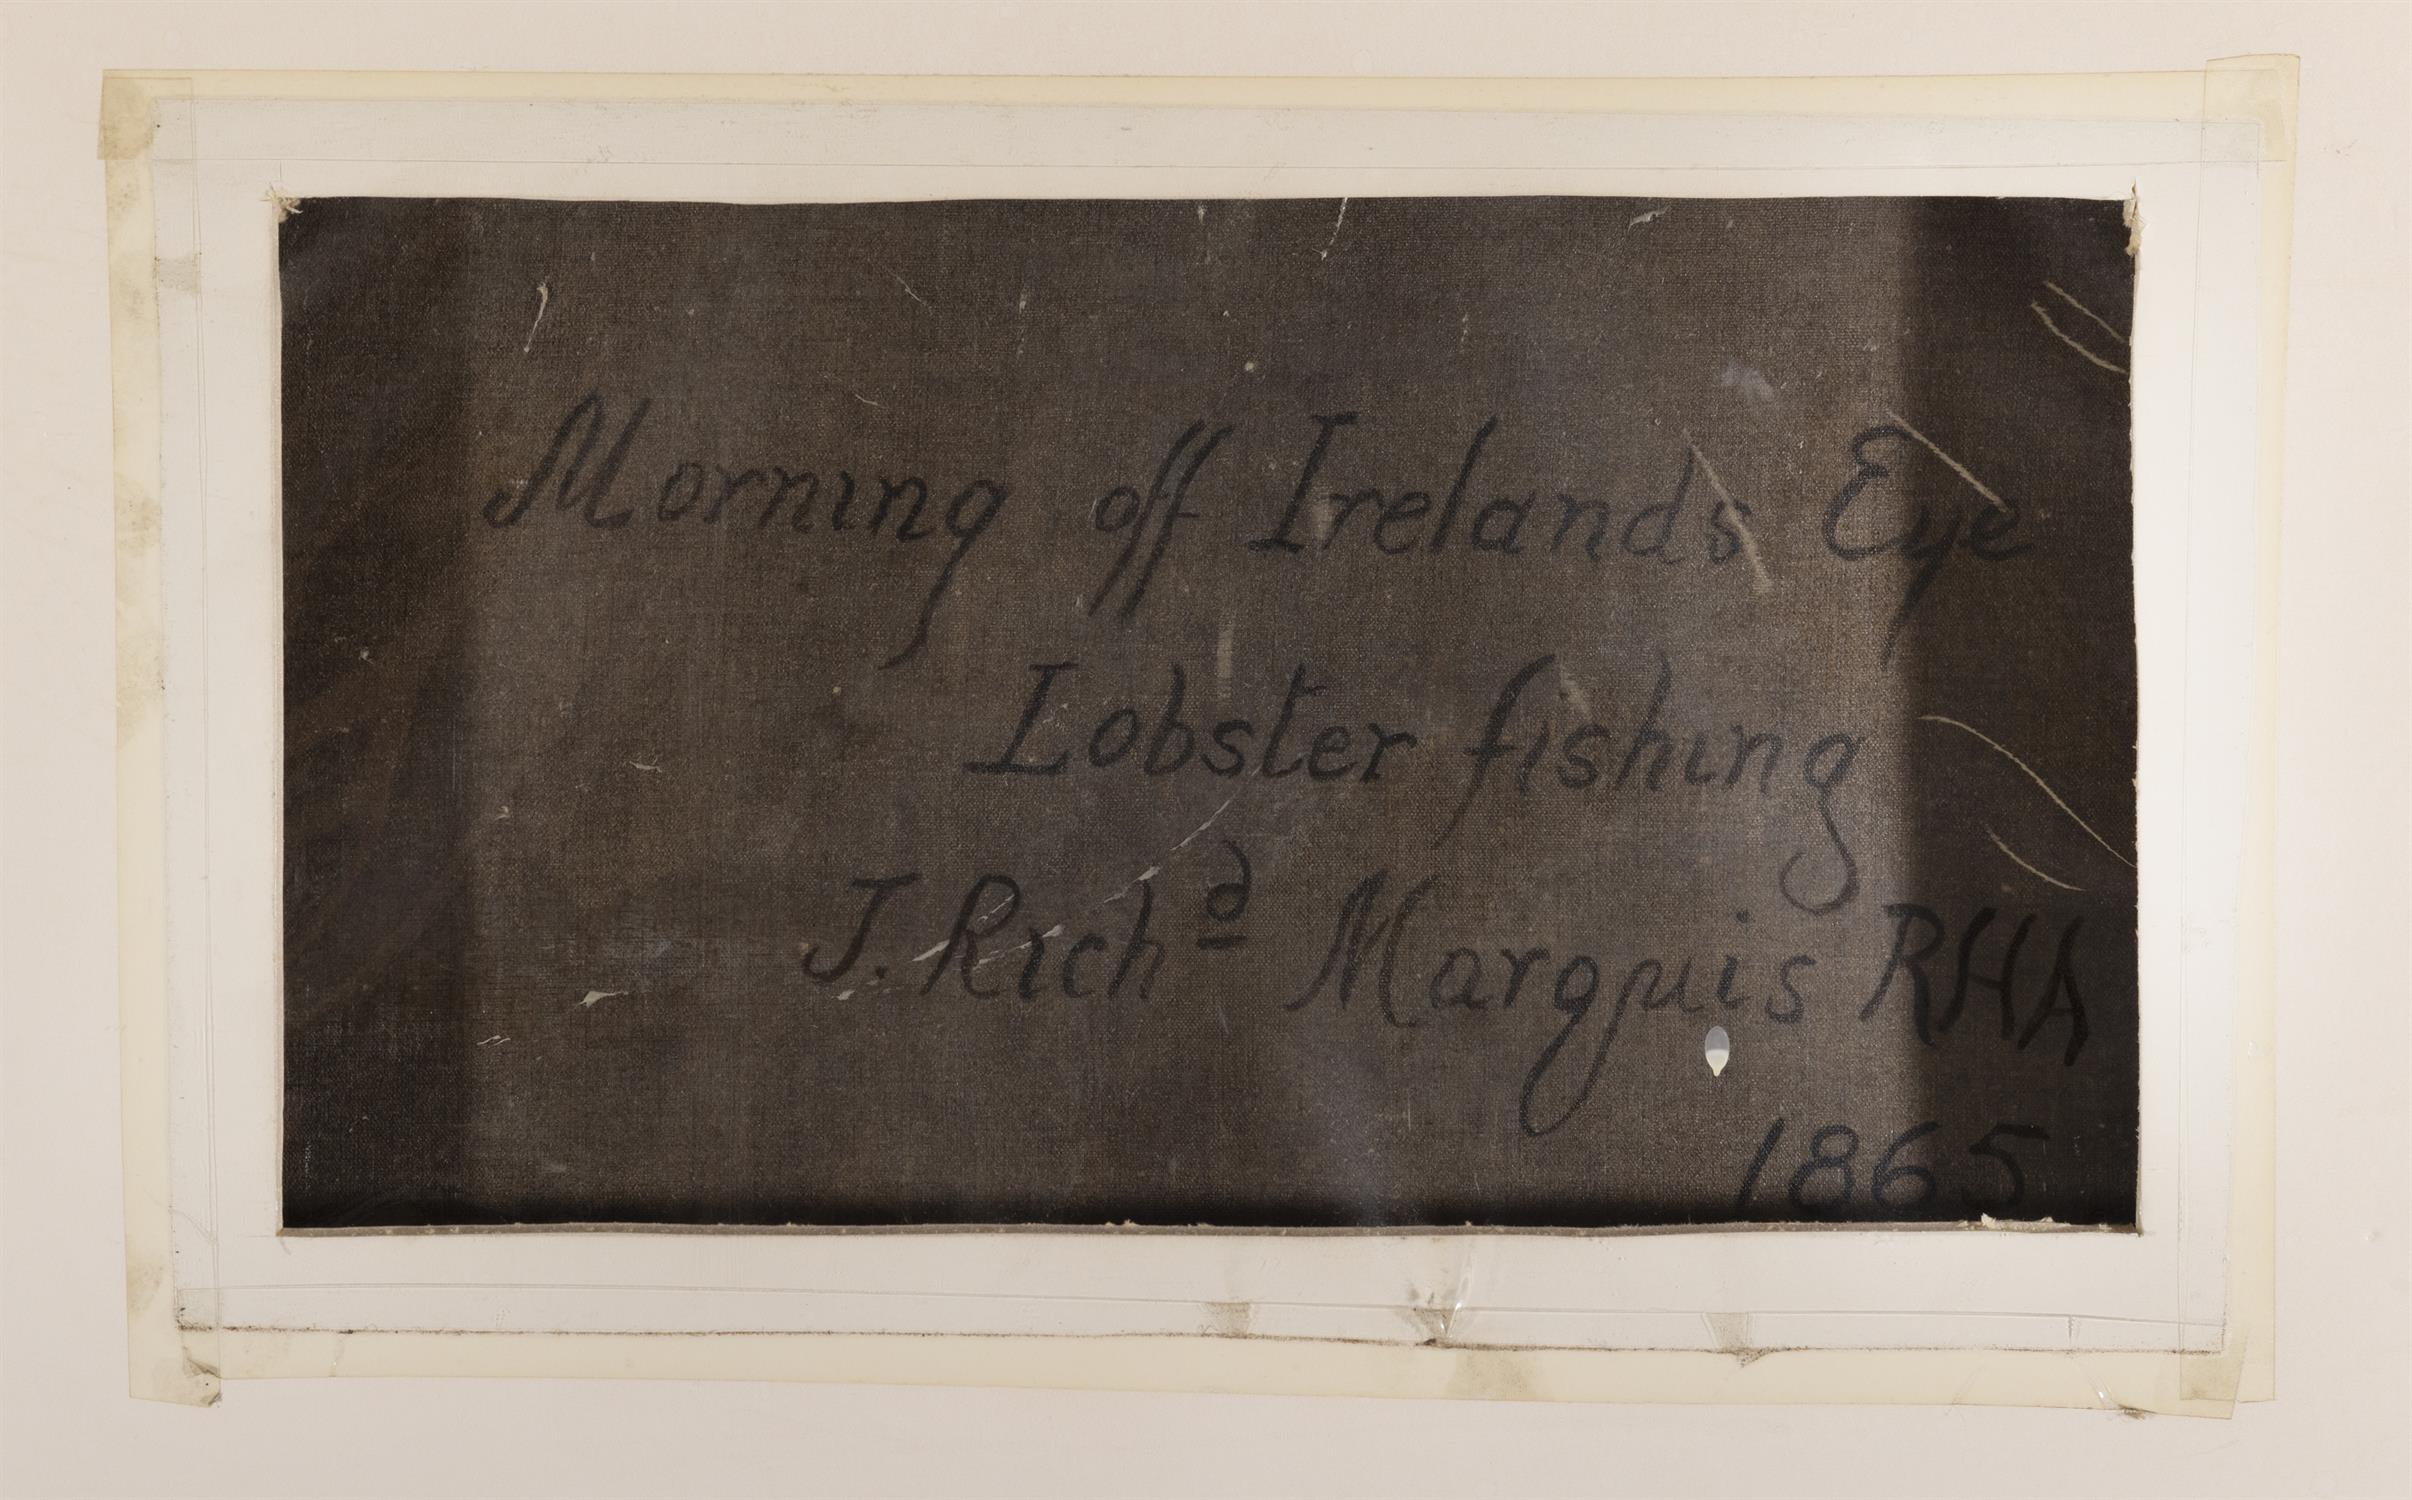 Morning off Irelands Eye
Lobster fishing
J. Richᵈ Marquis RHA
1865